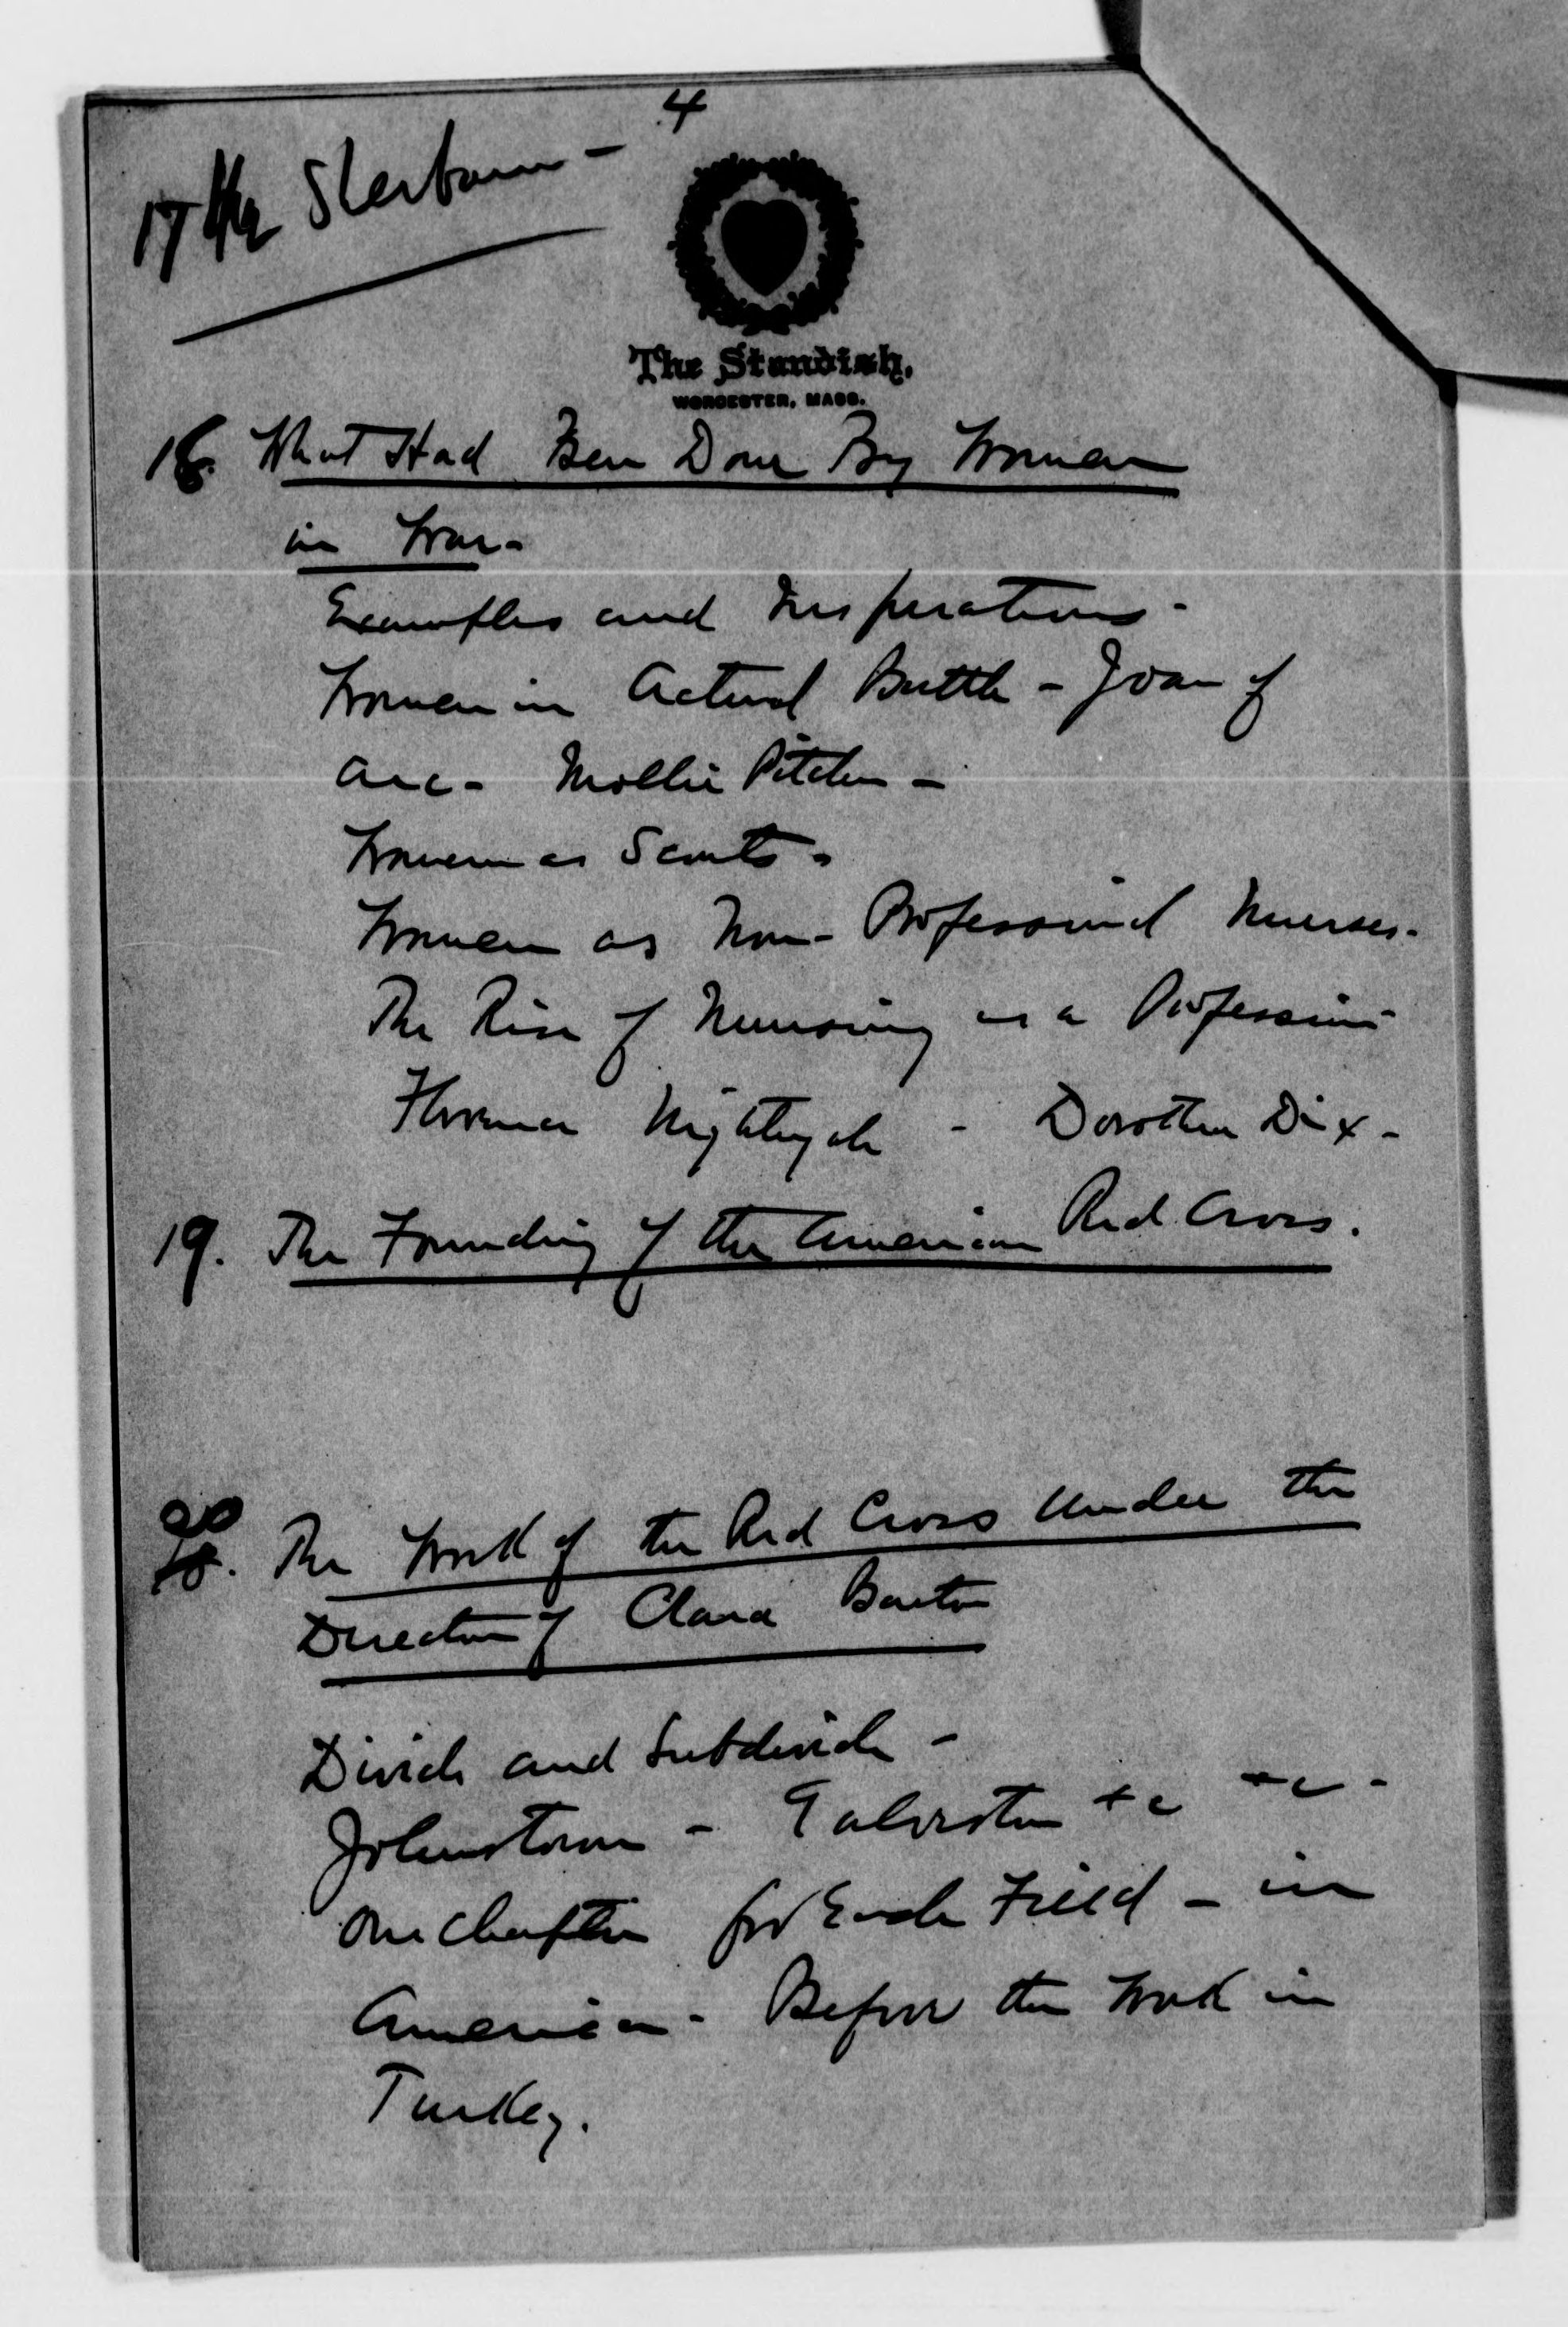 4
17
The Standish,
WORCESTER, MASS.
18. What Had Been Done By Women
in War-
Examples and Inspirations-
Women in Actual Battle - Joan of
Arc - Mollie Pitcher -
Women as Scouts -
Women as Non-Professional Nurses-
The Rise of Nursing as a Profession-
Florence Nightingale - Dorothea Dix -
19. The Founding of the American Red Cross.
20. The Work of the Red Cross Under the
Direction of Clara Barton
Divide and Subdivide -
Johnstown - Galveston +c +c -
One Chapter for Each Field - in
America - Before the Work in
Turkey.